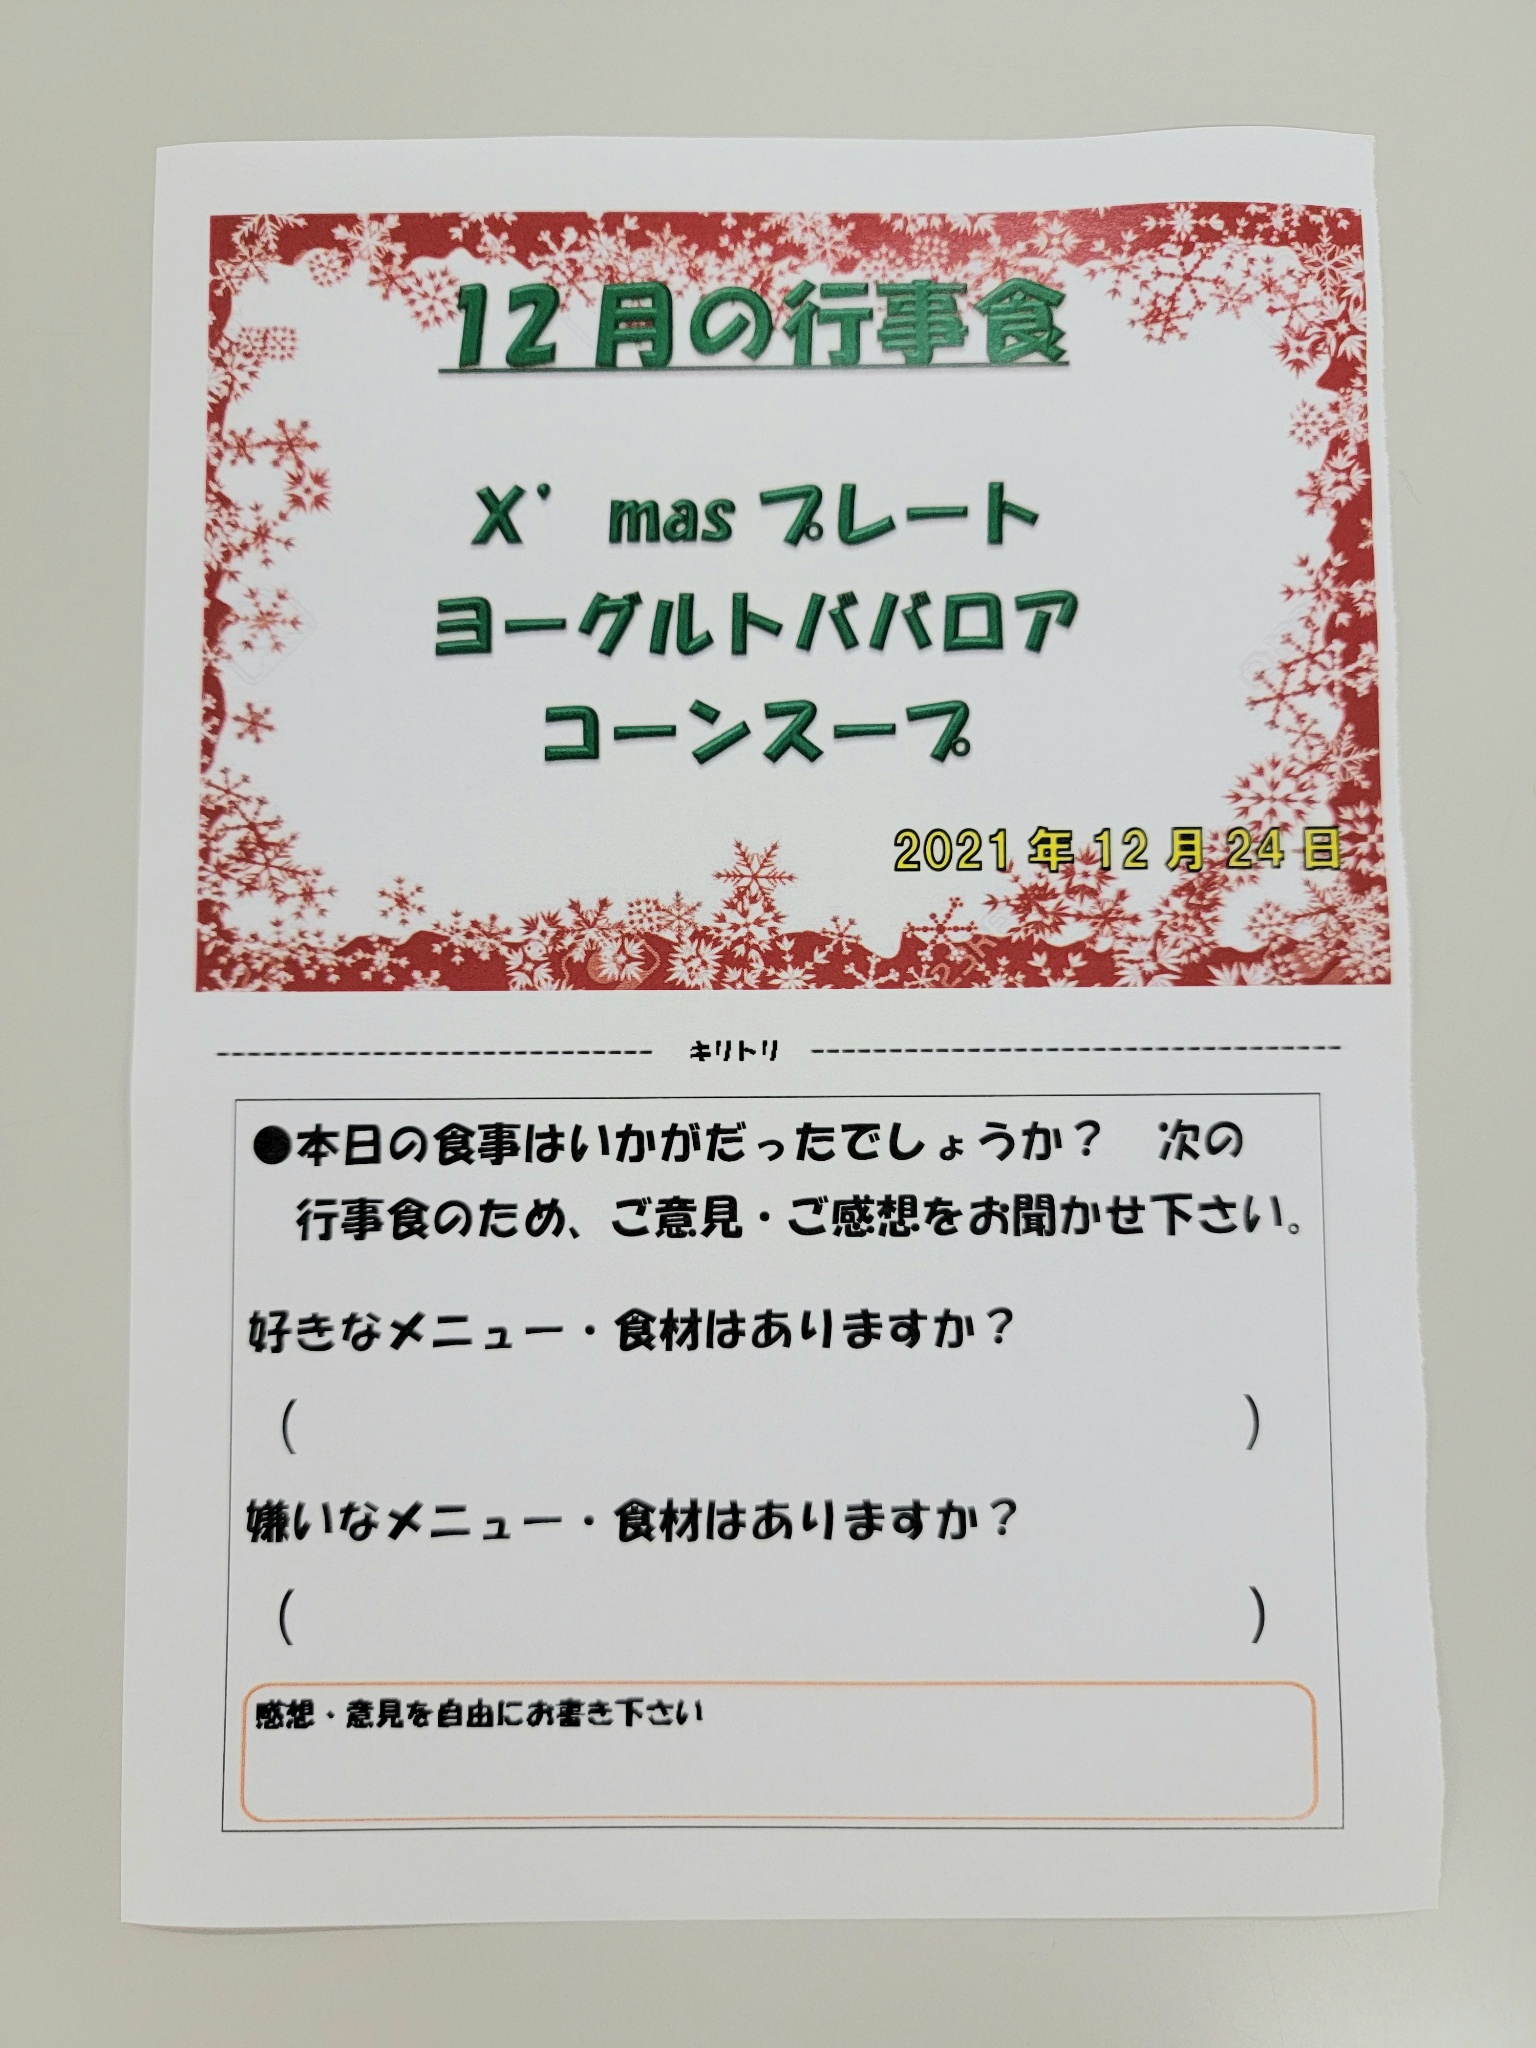 12月の行事食
X’ masプレート
ヨーグルトババロア
コーンスープ
2021年12月24日
キリトリ
●本日の食事はいかがだったでしょうか？　次の
行事食のため、ご意見・ご感想をお聞かせ下さい。
好きなメニュー・食材はありますか？
（　　　　　　　　　　　　　　　　　　　　　）
嫌いなメニュー・食材はありますか？
（　　　　　　　　　　　　　　　　　　　　　）
感想・意見を自由にお書き下さい